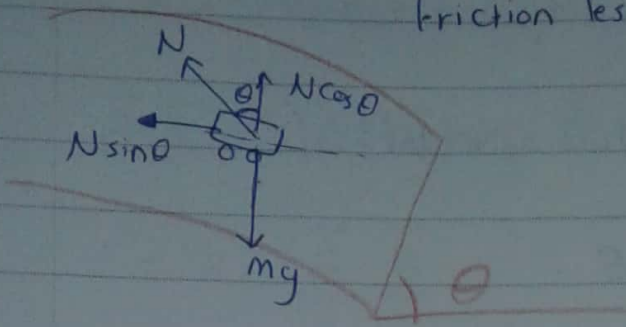 friction les
N
θ
Ncosθ
Nsinθ
mg
θ